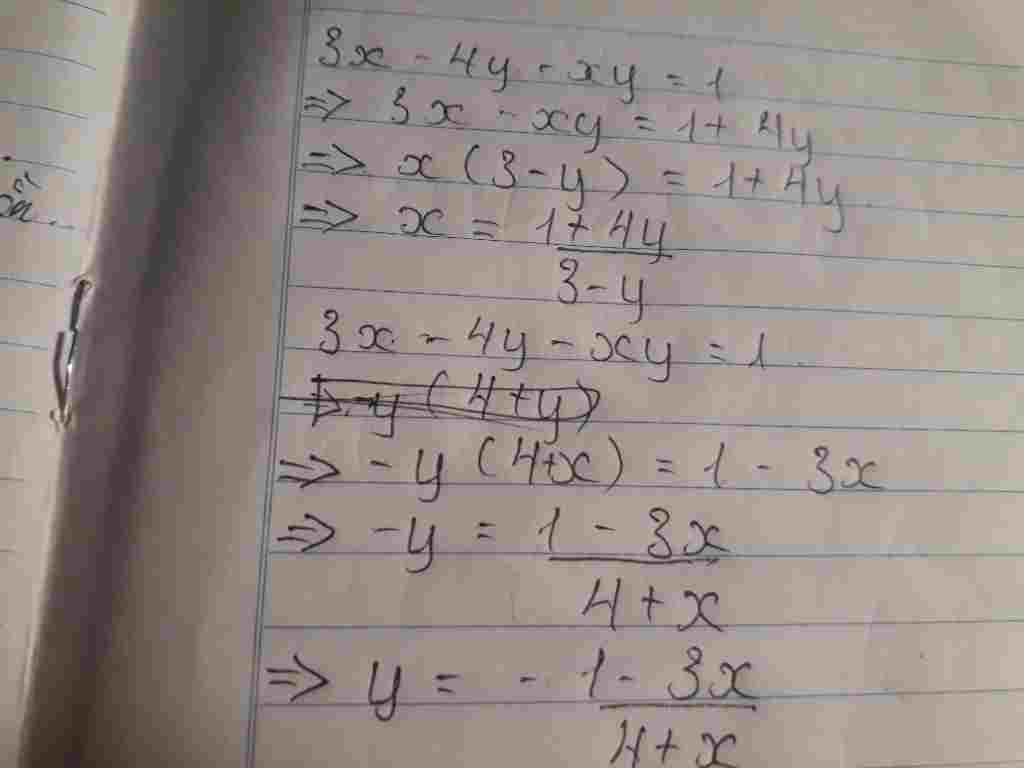 3x - 4y - xy = 1
=> 3x - xy = 1 + 4y
=> x (3 - y) = 1 + 4y
=> x = 1 + 4y
3 - y
3x - 4y - xy = 1
=> -y (4 + y)
=> -y (4+x) = 1 - 3x
=> -y = 1 - 3x
4 + x
=> y = - 1 - 3x
4 + x